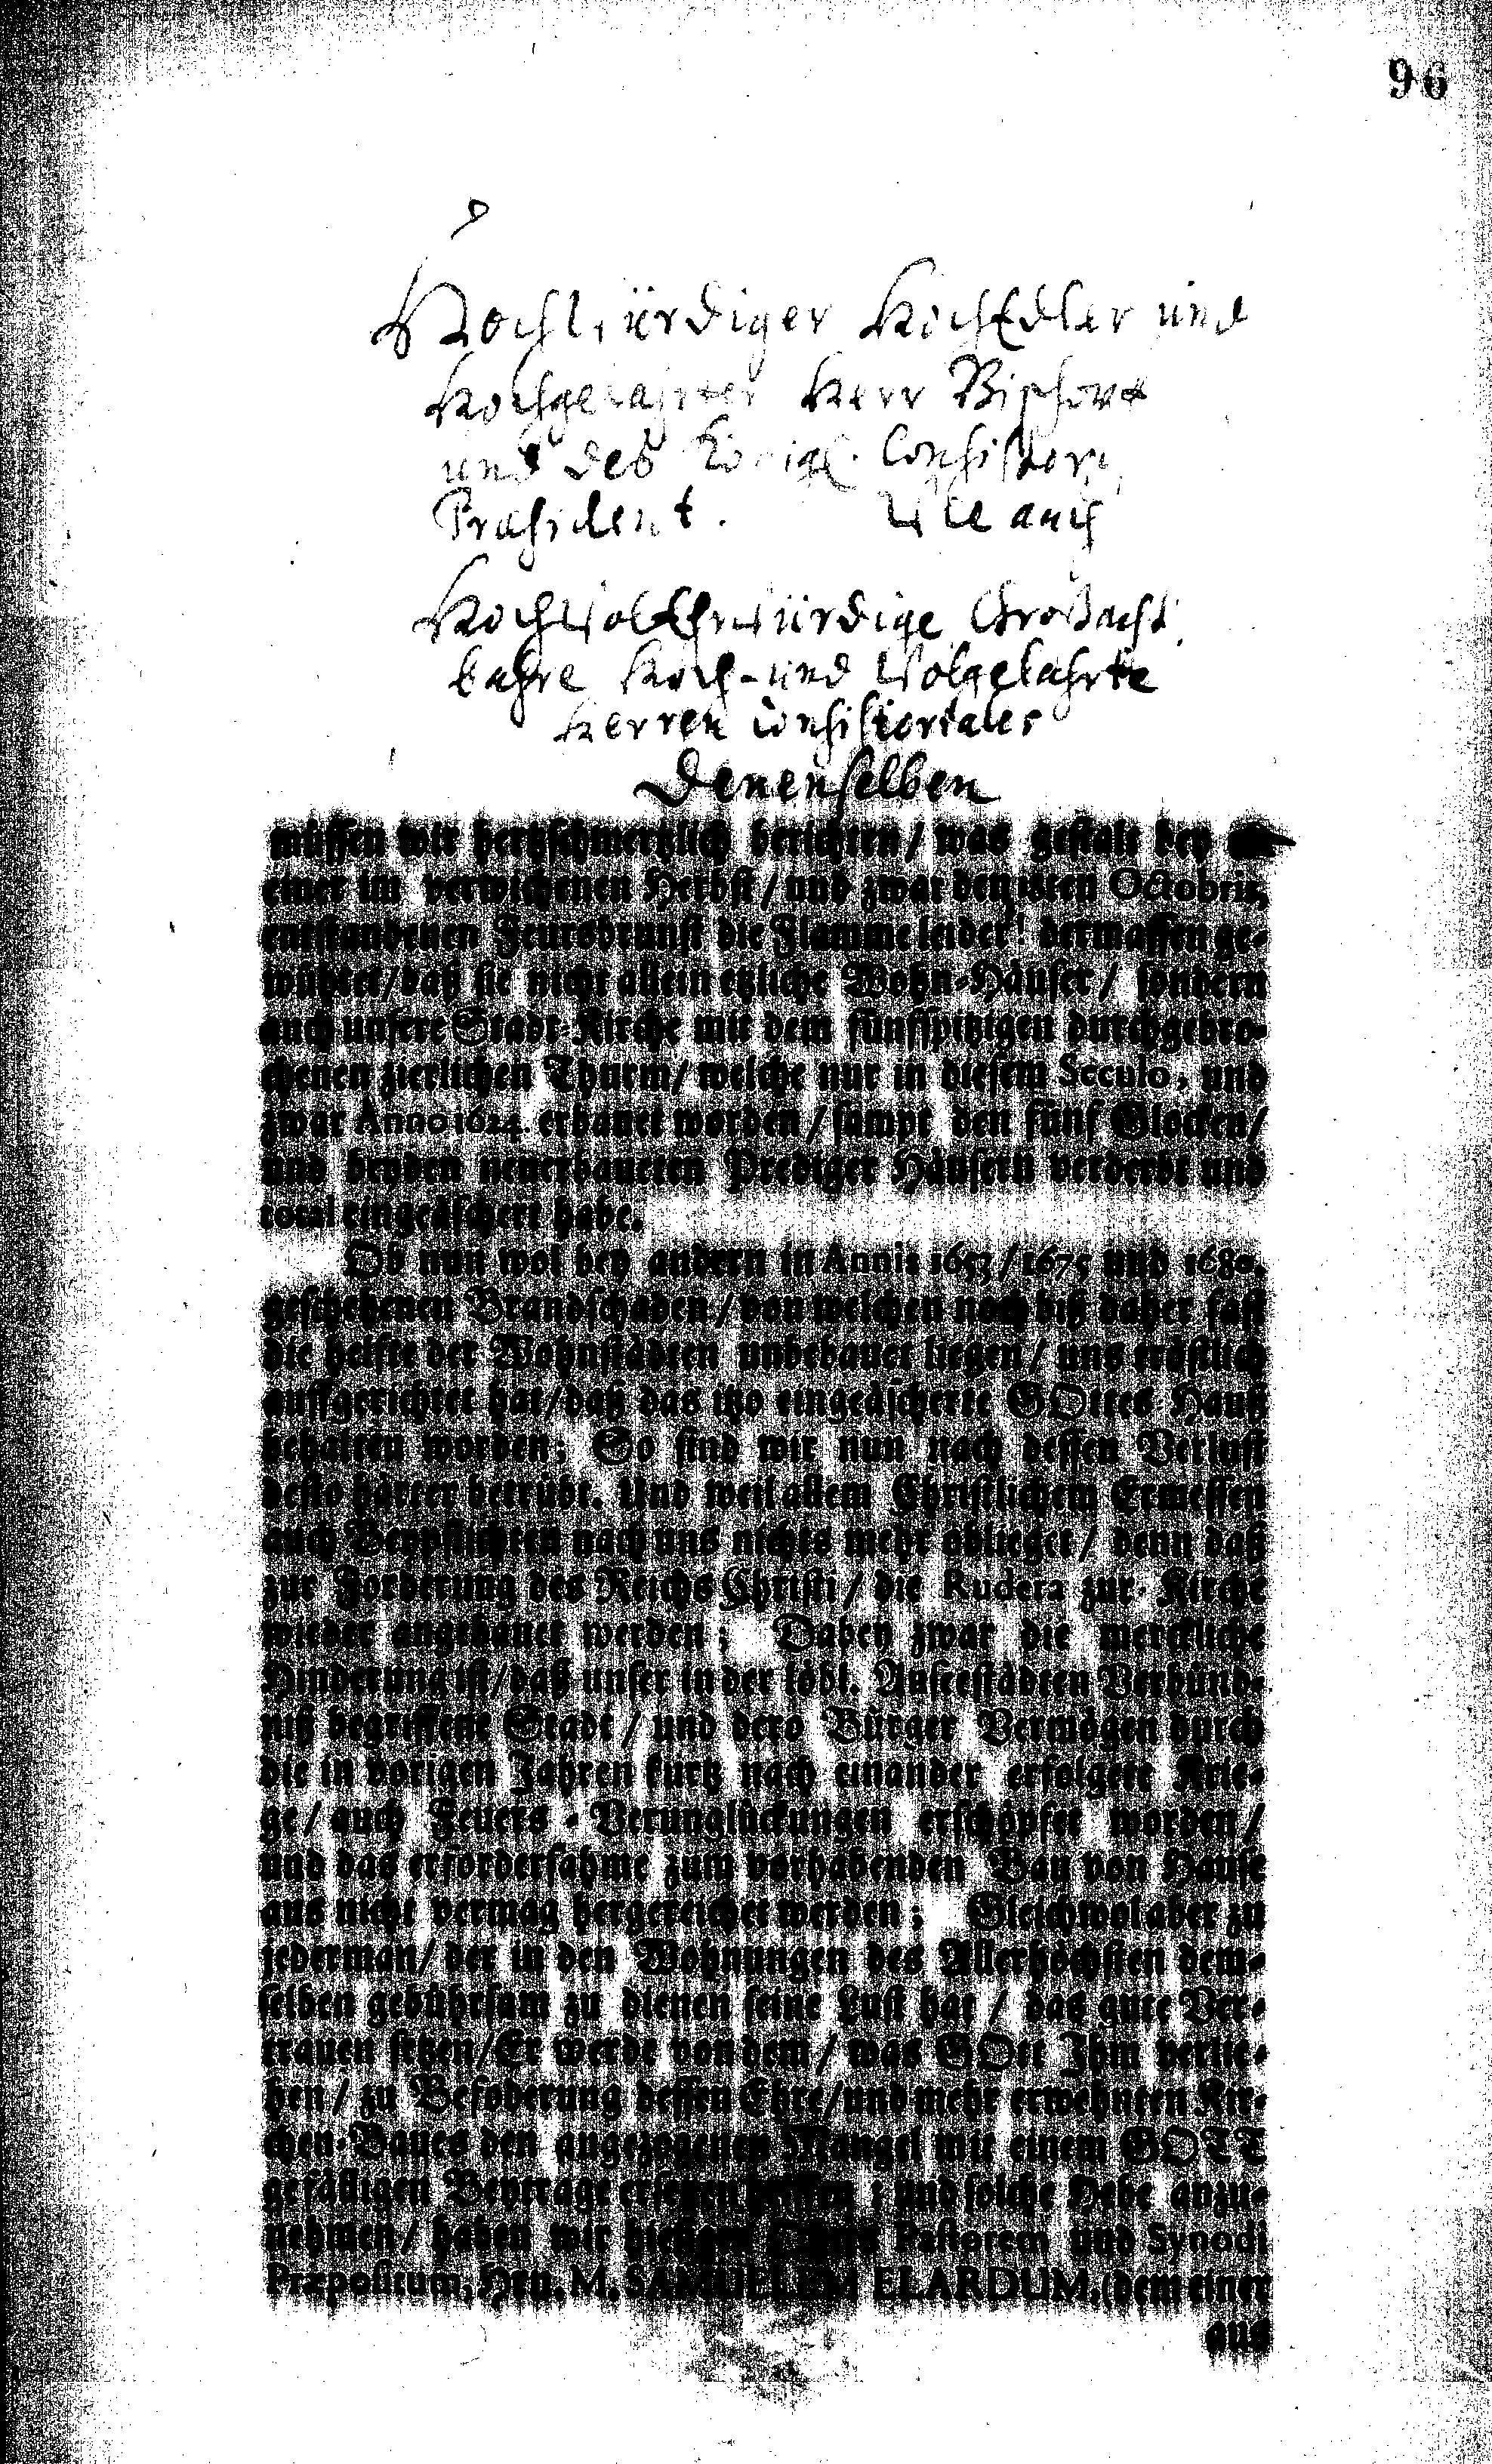 96
Hochwürdiger HochEdler und
Hochgelahrter Herr Bischoff
und des Königl. Consistorij
Præsident. Wie auch
HochWolEhrwürdige Großacht
bahre Hoch- und Wolgelahrte
Herren Consistoriales
Denenselben
müssen wir hertzschmertzlich berichten / was gestalt bey
einer im verwichenen Herbst / und zwar den 13ten Octobris,
entstandenen Feursbrunst die Flamme leider! dermassen ge-
wühtet / daß sie nicht allein etzliche Wohn-Häuser / sondern
auch unsere Stadt-Kirche mit dem fünfspitzigen durchgebro-
chenen zierlichen Thurm / welche nur in diesem Seculo, und
zwar Anno 1624. erbauet worden / sampt den fünf Glocken /
und beyden neuerbaueten Prediger Häusern verderbt und
total eingeäschert habe.
Ob nun wol bey andern in Annis 1653 / 1675 und 1680.
geschehenen Brandschaden / von welchen noch biß daher fast
die helfte der Wohnstädten unbebauet liegen / uns tröstlich
auffgerichtet hat / daß das itzo eingeäscherte GOttes Hauß
behalten worden; So sind wir nun nach dessen Verlust
desto härter betrübt. Und weil allem Christlichem Ermessen
auch Beypflichten nach uns nichts mehr oblieget / denn daß
zur Forderung des Reichs Christi / die Rudera zur Kirche
wieder angebauet werden; Dabey zwar die merckliche
Hinderung ist / daß unser in der löbl. Anseestädten Verbünd-
niß begriffene Stadt / und dero Bürger Vermögen durch
die in vorigen Jahren kurtz nach einander erfolgete Krie-
ge / auch Feuers-Verunglückungen erschöpfet worden /
und das erfordersahme zum vorhabenden Bau von Hause
aus nicht vermag hergereichet werden; Gleichwol aber zu
jederman / der in den Wohnungen des Allerhöchsten dem-
selben gebührsam zu dienen seine Lust hat / das gute Ver-
trauen setzen / Er werde von dem / was GOtt Ihm verlie-
hen / zu Befoderung dessen Ehre / und mehr erwehnten Kir-
chen-Baues den angezogenen Mangel mit einem GOTT
gefälligen Beytrage ersetzen helffen; und solche Hebe anzu-
nehmen / haben wir Pastorem und Synodi
Præpositum, Hrn. M. SAMUELEM ELARDUM, (dem einer
aus